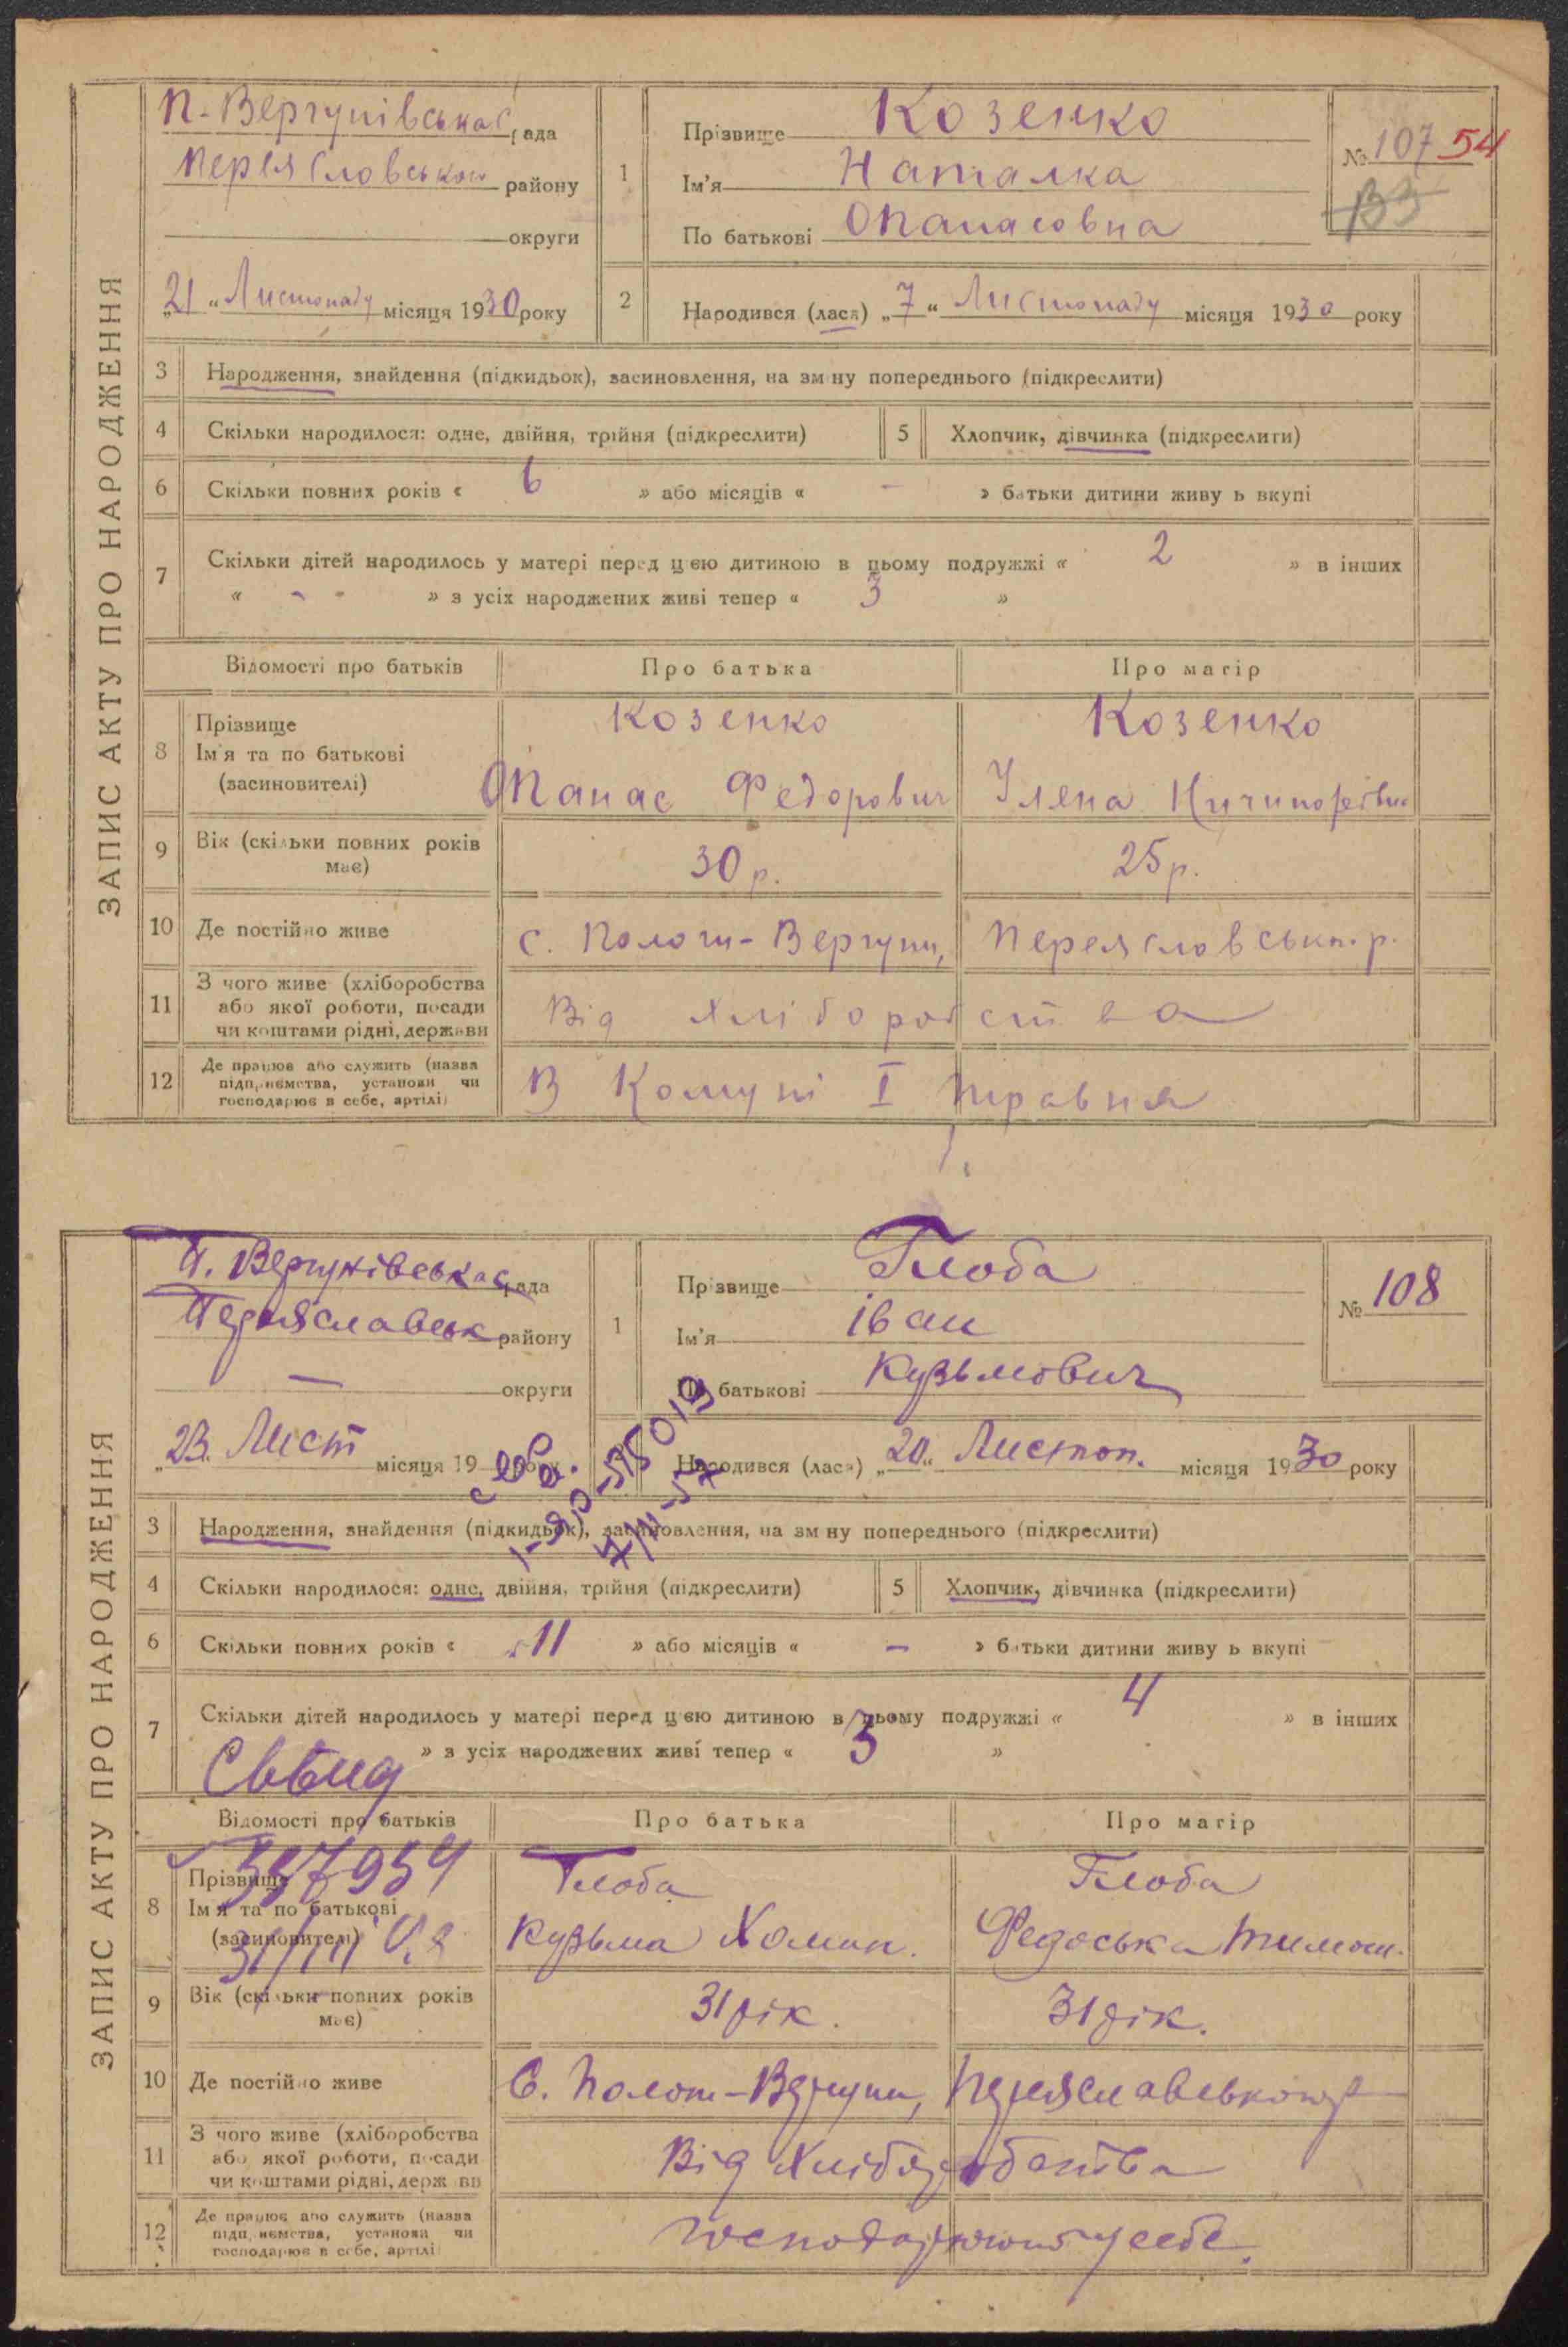 ЗАПИС АКТУ ПРО НАРОДЖЕННЯ
П-Вергунівська рада
Переясловського району
округи
„21“ Листопаду місяця 1930 року
1
Прізвище Козенко
Ім'я Наталка
По батькові Опанасовна
№ 107 54
2
Народився (лася) „7“ Листопаду місяця 1930 року
3 Народження, знайдення (підкидьок), засиновлення, на зміну попереднього (підкреслити)
4 Скільки народилося: одне, двійня, трійня (підкреслити) 5 Хлопчик, дівчинка (підкреслити)
6 Скільки повних років « 6 » або місяців « - » батьки дитини живуть вкупі
7 Скільки дітей народилось у матері перед цією дитиною в цьому подружжі « 2 » в інших
« - - » з усіх народжених живі тепер « 3 »
Відомості про батьків Про батька Про матір
8 Прізвище Козенко Козенко
Ім'я та по батькові
(засиновителі) Опанас Федорович Ілена Ничипорівна
9 Вік (скільки повних років має) 30 р. 25 р.
10 Де постійно живе с. Пологи-Вергуни, Переясловськ. р.
11 З чого живе (хліборобства
або якої роботи, посади
чи коштами рідні, держави Від хліборобства
12 Де працює або служить (назва
підприємства, установи чи
господарює в себе, артілі) В Комуні I травня
ЗАПИС АКТУ ПРО НАРОДЖЕННЯ
П. Вергунівська рада
Переяславськ району
— округи
„23. Лист місяця 19 року
1
Прізвище Глоба
Ім'я Іван
По батькові Кузьмович
№ 108
Народився (лася) „20“ Листоп. місяця 1930 року
3 Народження, знайдення (підкидьок), засиновлення, на зміну попереднього (підкреслити)
4 Скільки народилося: одне, двійня, трійня (підкреслити) 5 Хлопчик, дівчинка (підкреслити)
6 Скільки повних років « 11 » або місяців « - » батьки дитини живуть вкупі
7 Скільки дітей народилось у матері перед цією дитиною в цьому подружжі « 4 » в інших
» з усіх народжених живі тепер « 3 »
Відомості про батьків Про батька Про матір
8 Прізвище Глоба Глоба
Ім'я та по батькові
(засиновителі) Кузьма Хомич. Федоська Тимош.
9 Вік (скільки повних років має) 31 рік. 31 рік.
10 Де постійно живе С. Пологи-Вергуни, Переяславського р
11 З чого живе (хліборобства
або якої роботи, посади
чи коштами рідні, держави Від Хліборобства
12 Де працює або служить (назва
підприємства, установи чи
господарює в себе, артілі) господарюють у себе.